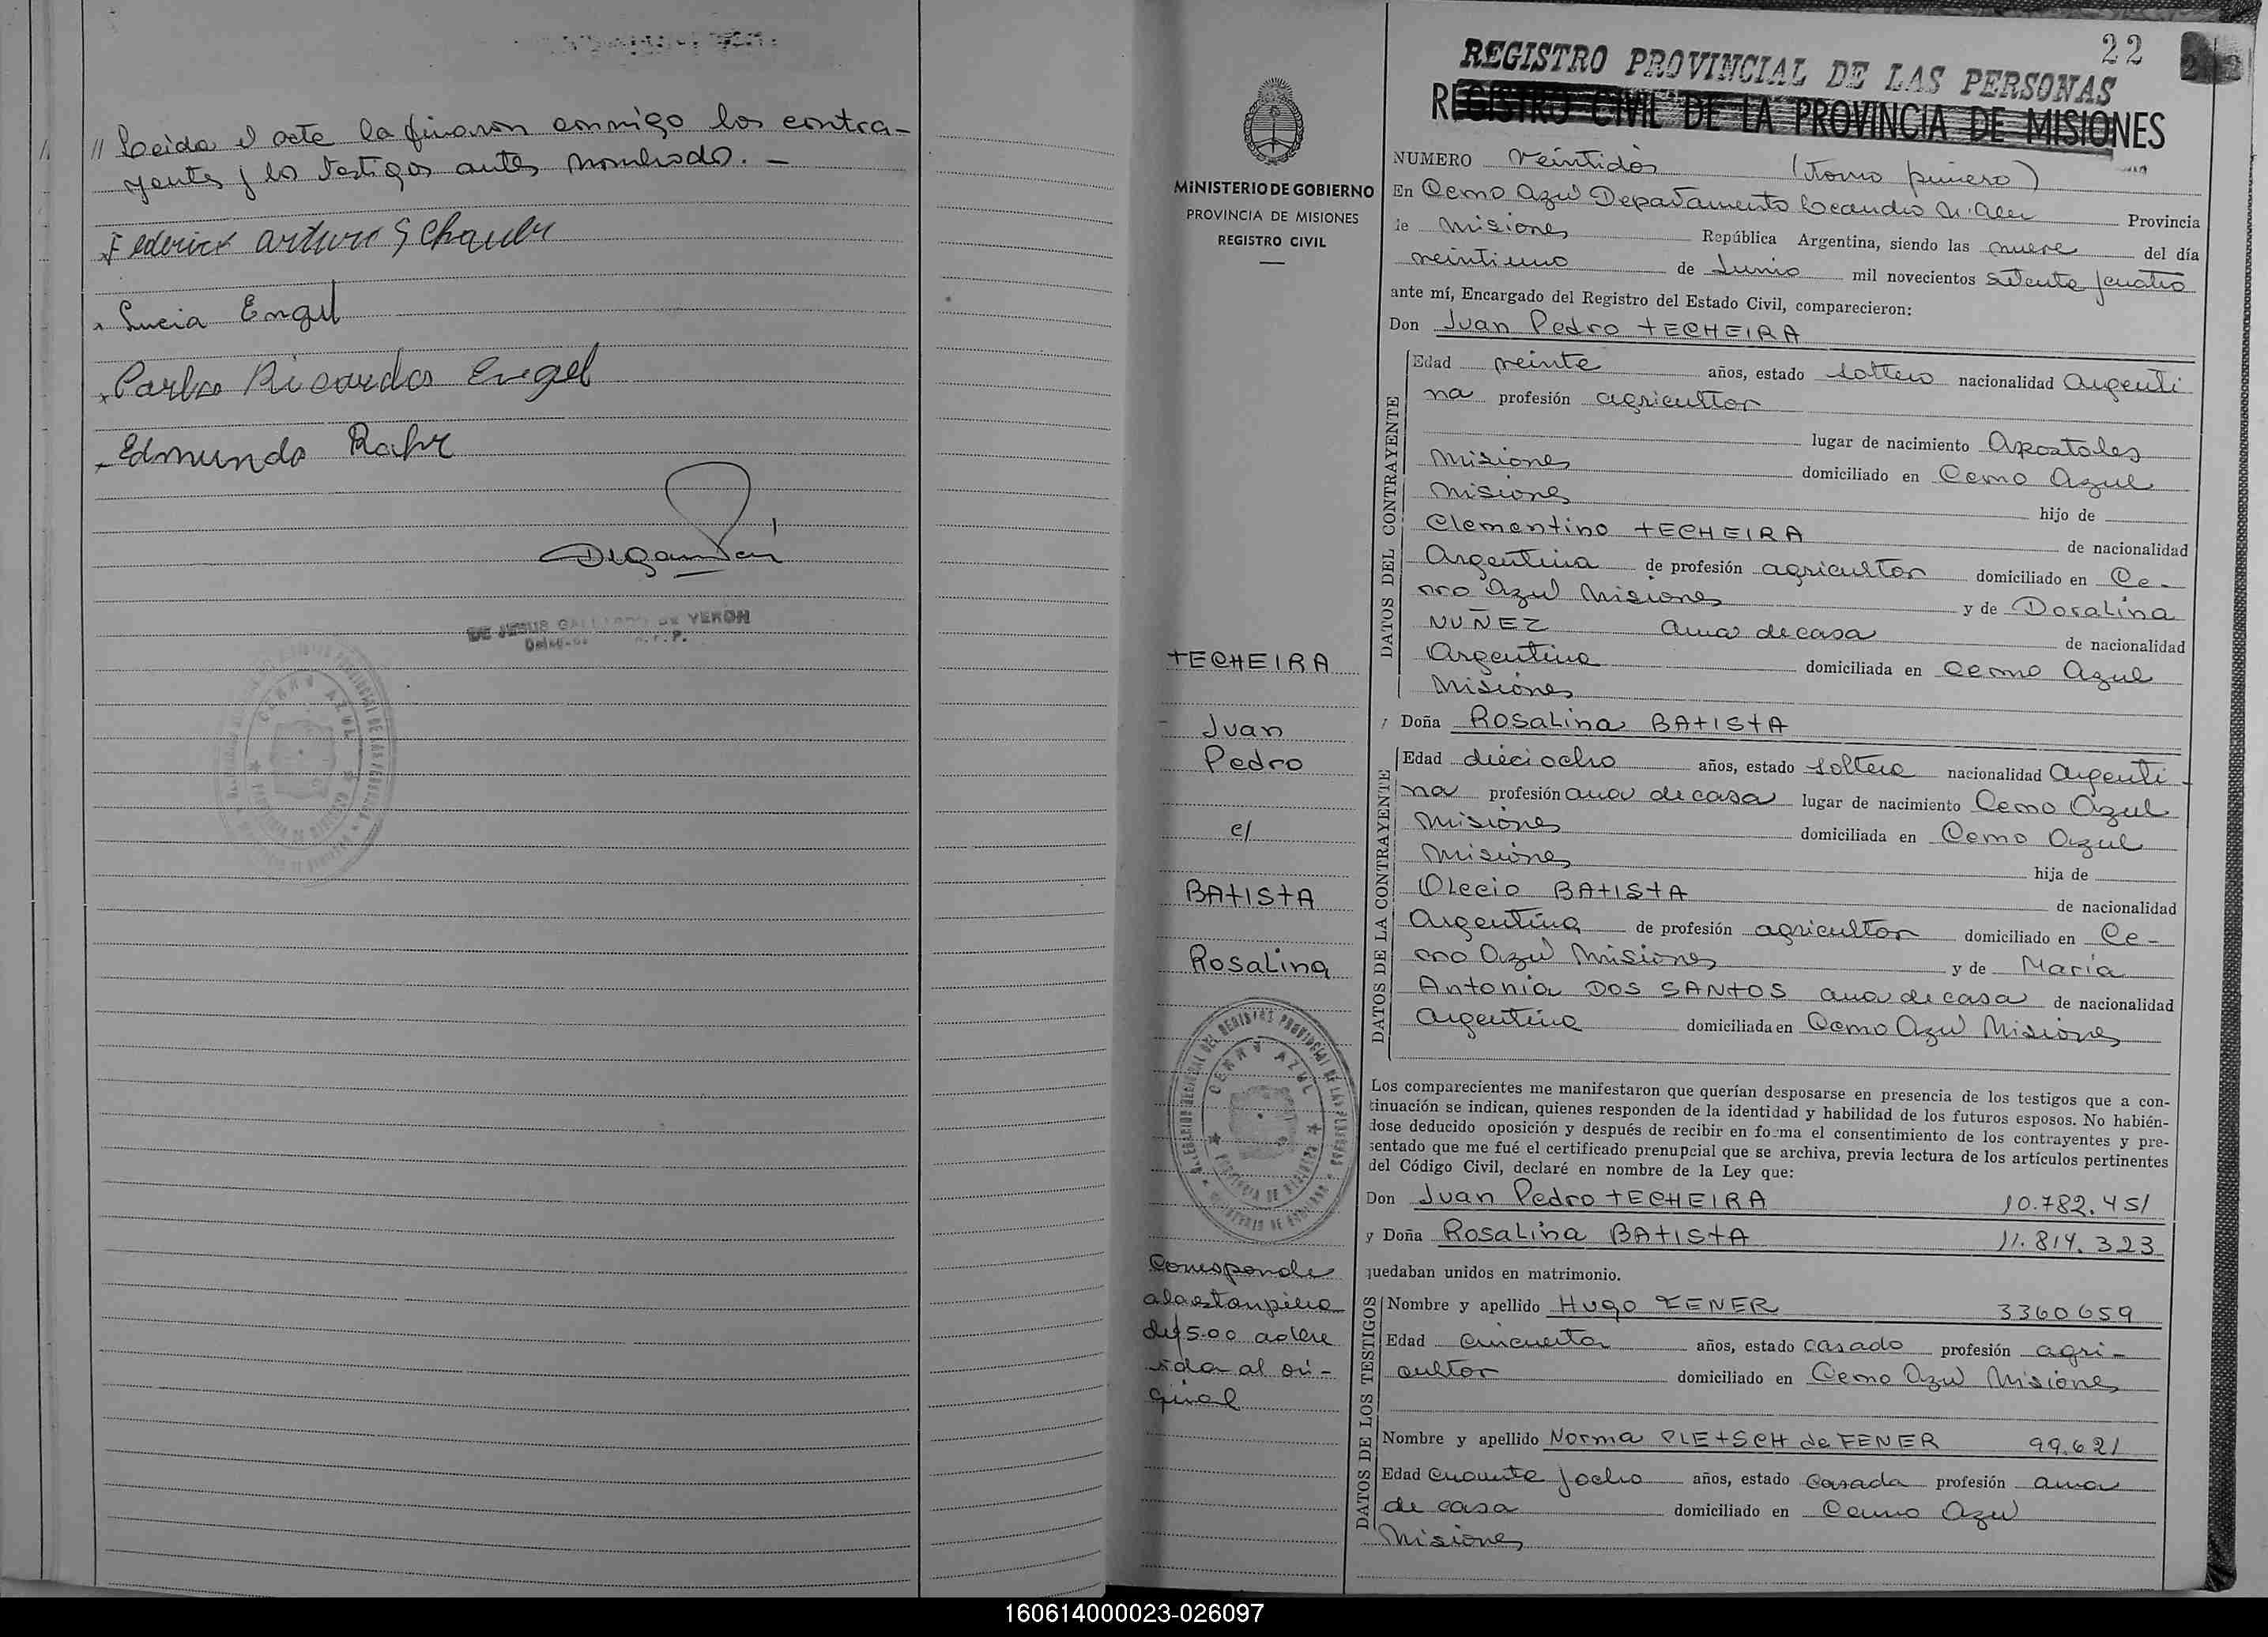 // Leida el acta la firmaron conmigo los contra-
yentes y los testigos antes nombrado. -
Federico Arturo Schauer
Lucia Engel
Carlos Ricardo Engel
Edmundo Rahr
DE JESUS GALLARDO DE VERÓN
CERRO AZUL
22
REGISTRO PROVINCIAL DE LAS PERSONAS
REGISTRO CIVIL DE LA PROVINCIA DE MISIONES
MINISTERIO DE GOBIERNO
PROVINCIA DE MISIONES
REGISTRO CIVIL
TECHEIRA
Juan
Pedro
c/
BATISTA
Rosalina
CERRO AZUL
Corresponde
a la estampilla
de $ 5.00 adhe
rida al ori-
ginal
NUMERO veintidós (tomo primero)
En Cerro Azul Departamento Leandro N. Alem Provincia
de Misiones República Argentina, siendo las nueve del día
veintiuno de Junio mil novecientos setenta y cuatro
ante mí, Encargado del Registro del Estado Civil, comparecieron:
Don Juan Pedro TECHEIRA
DATOS DEL CONTRAYENTE
Edad veinte años, estado soltero nacionalidad Argenti
na profesión agricultor
lugar de nacimiento Apostoles
Misiones domiciliado en Cerro Azul
Misiones hijo de
Clementino TECHEIRA de nacionalidad
Argentina de profesión agricultor domiciliado en Ce-
rro Azul Misiones y de Doralina
NUÑEZ ama de casa de nacionalidad
Argentina domiciliada en Cerro Azul
Misiones
y Doña Rosalina BATISTA
DATOS DE LA CONTRAYENTE
Edad dieciocho años, estado soltera nacionalidad Argenti-
na profesión ama de casa lugar de nacimiento Cerro Azul
Misiones domiciliada en Cerro Azul
Misiones hija de
Olecio BATISTA de nacionalidad
Argentina de profesión agricultor domiciliado en Ce-
rro Azul Misiones y de María
Antonia DOS SANTOS ama de casa de nacionalidad
Argentina domiciliada en Cerro Azul Misiones
Los comparecientes me manifestaron que querían desposarse en presencia de los testigos que a con-
tinuación se indican, quienes responden de la identidad y habilidad de los futuros esposos. No habién-
dose deducido oposición y después de recibir en forma el consentimiento de los contrayentes y pre-
sentado que me fué el certificado prenupcial que se archiva, previa lectura de los artículos pertinentes
del Código Civil, declaré en nombre de la Ley que:
Don Juan Pedro TECHEIRA 10.782.451
y Doña Rosalina BATISTA 11.814.323
quedaban unidos en matrimonio.
DATOS DE LOS TESTIGOS
Nombre y apellido Hugo FENER 3360659
Edad cincuenta años, estado casado profesión agri-
cultor domiciliado en Cerro Azul Misiones
Nombre y apellido Norma PLETSCH de FENER 99.621
Edad cuarenta y ocho años, estado casada profesión ama
de casa domiciliado en Cerro Azul
Misiones
160614000023-026097